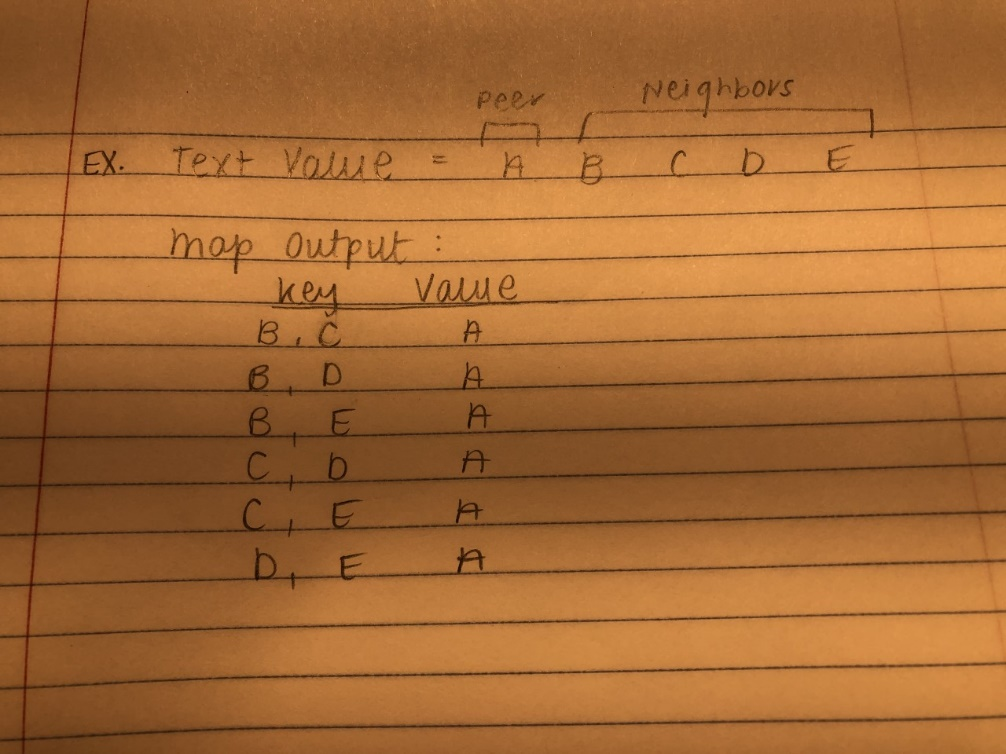 Peer Neighbors
EX. Text Value = A B C D E
map output :
key Value
B, C A
B, D A
B, E A
C, D A
C, E A
D, E A